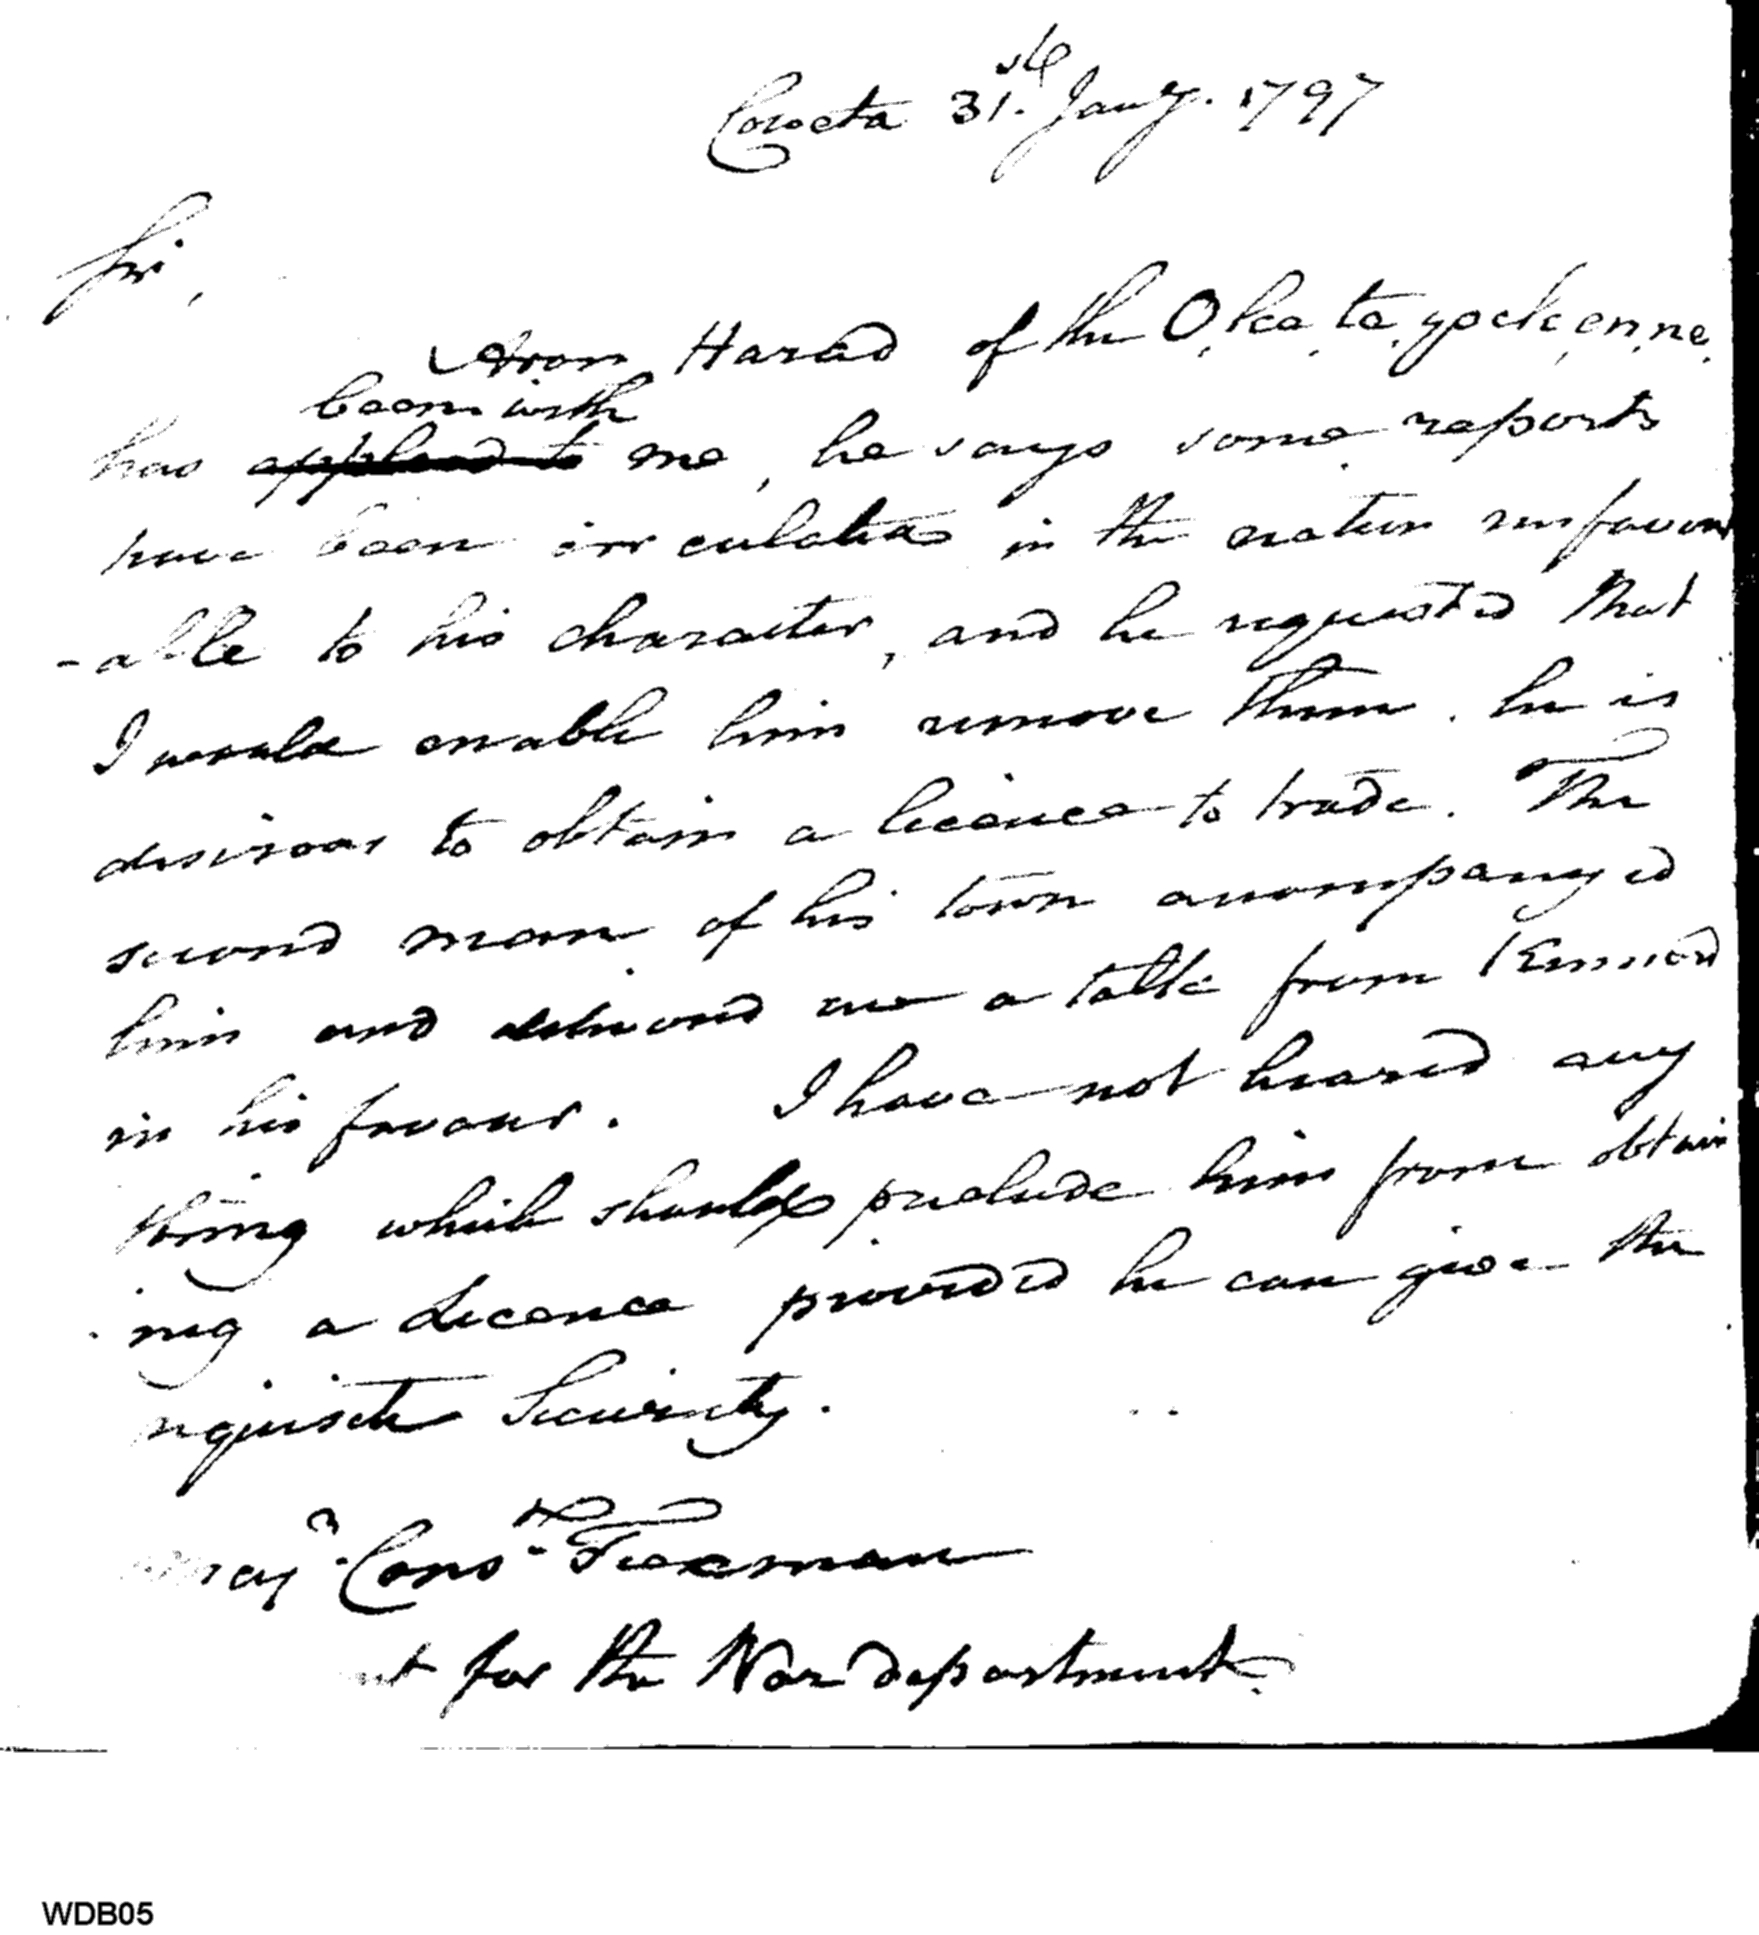 Coweta 31.st Jany. 1797
Sir,
Aron Harad of the O,ke,te,yock,en,ne,
been with
has applied to me, he says some reports
have been circulated in the nation unfavour
-able to his character, and he requested that
I would enable him remove them. he is
desirous to obtain a licence to trade. The
second man of his town accompanyed
him and delivered me a talk from Kennard
in his favour. I have not heared any
thing which should preclude him from obtain
ing a Licence provided he can give the
requisite Security.
Majr. Const. Freeman
for the War department.
WDB05